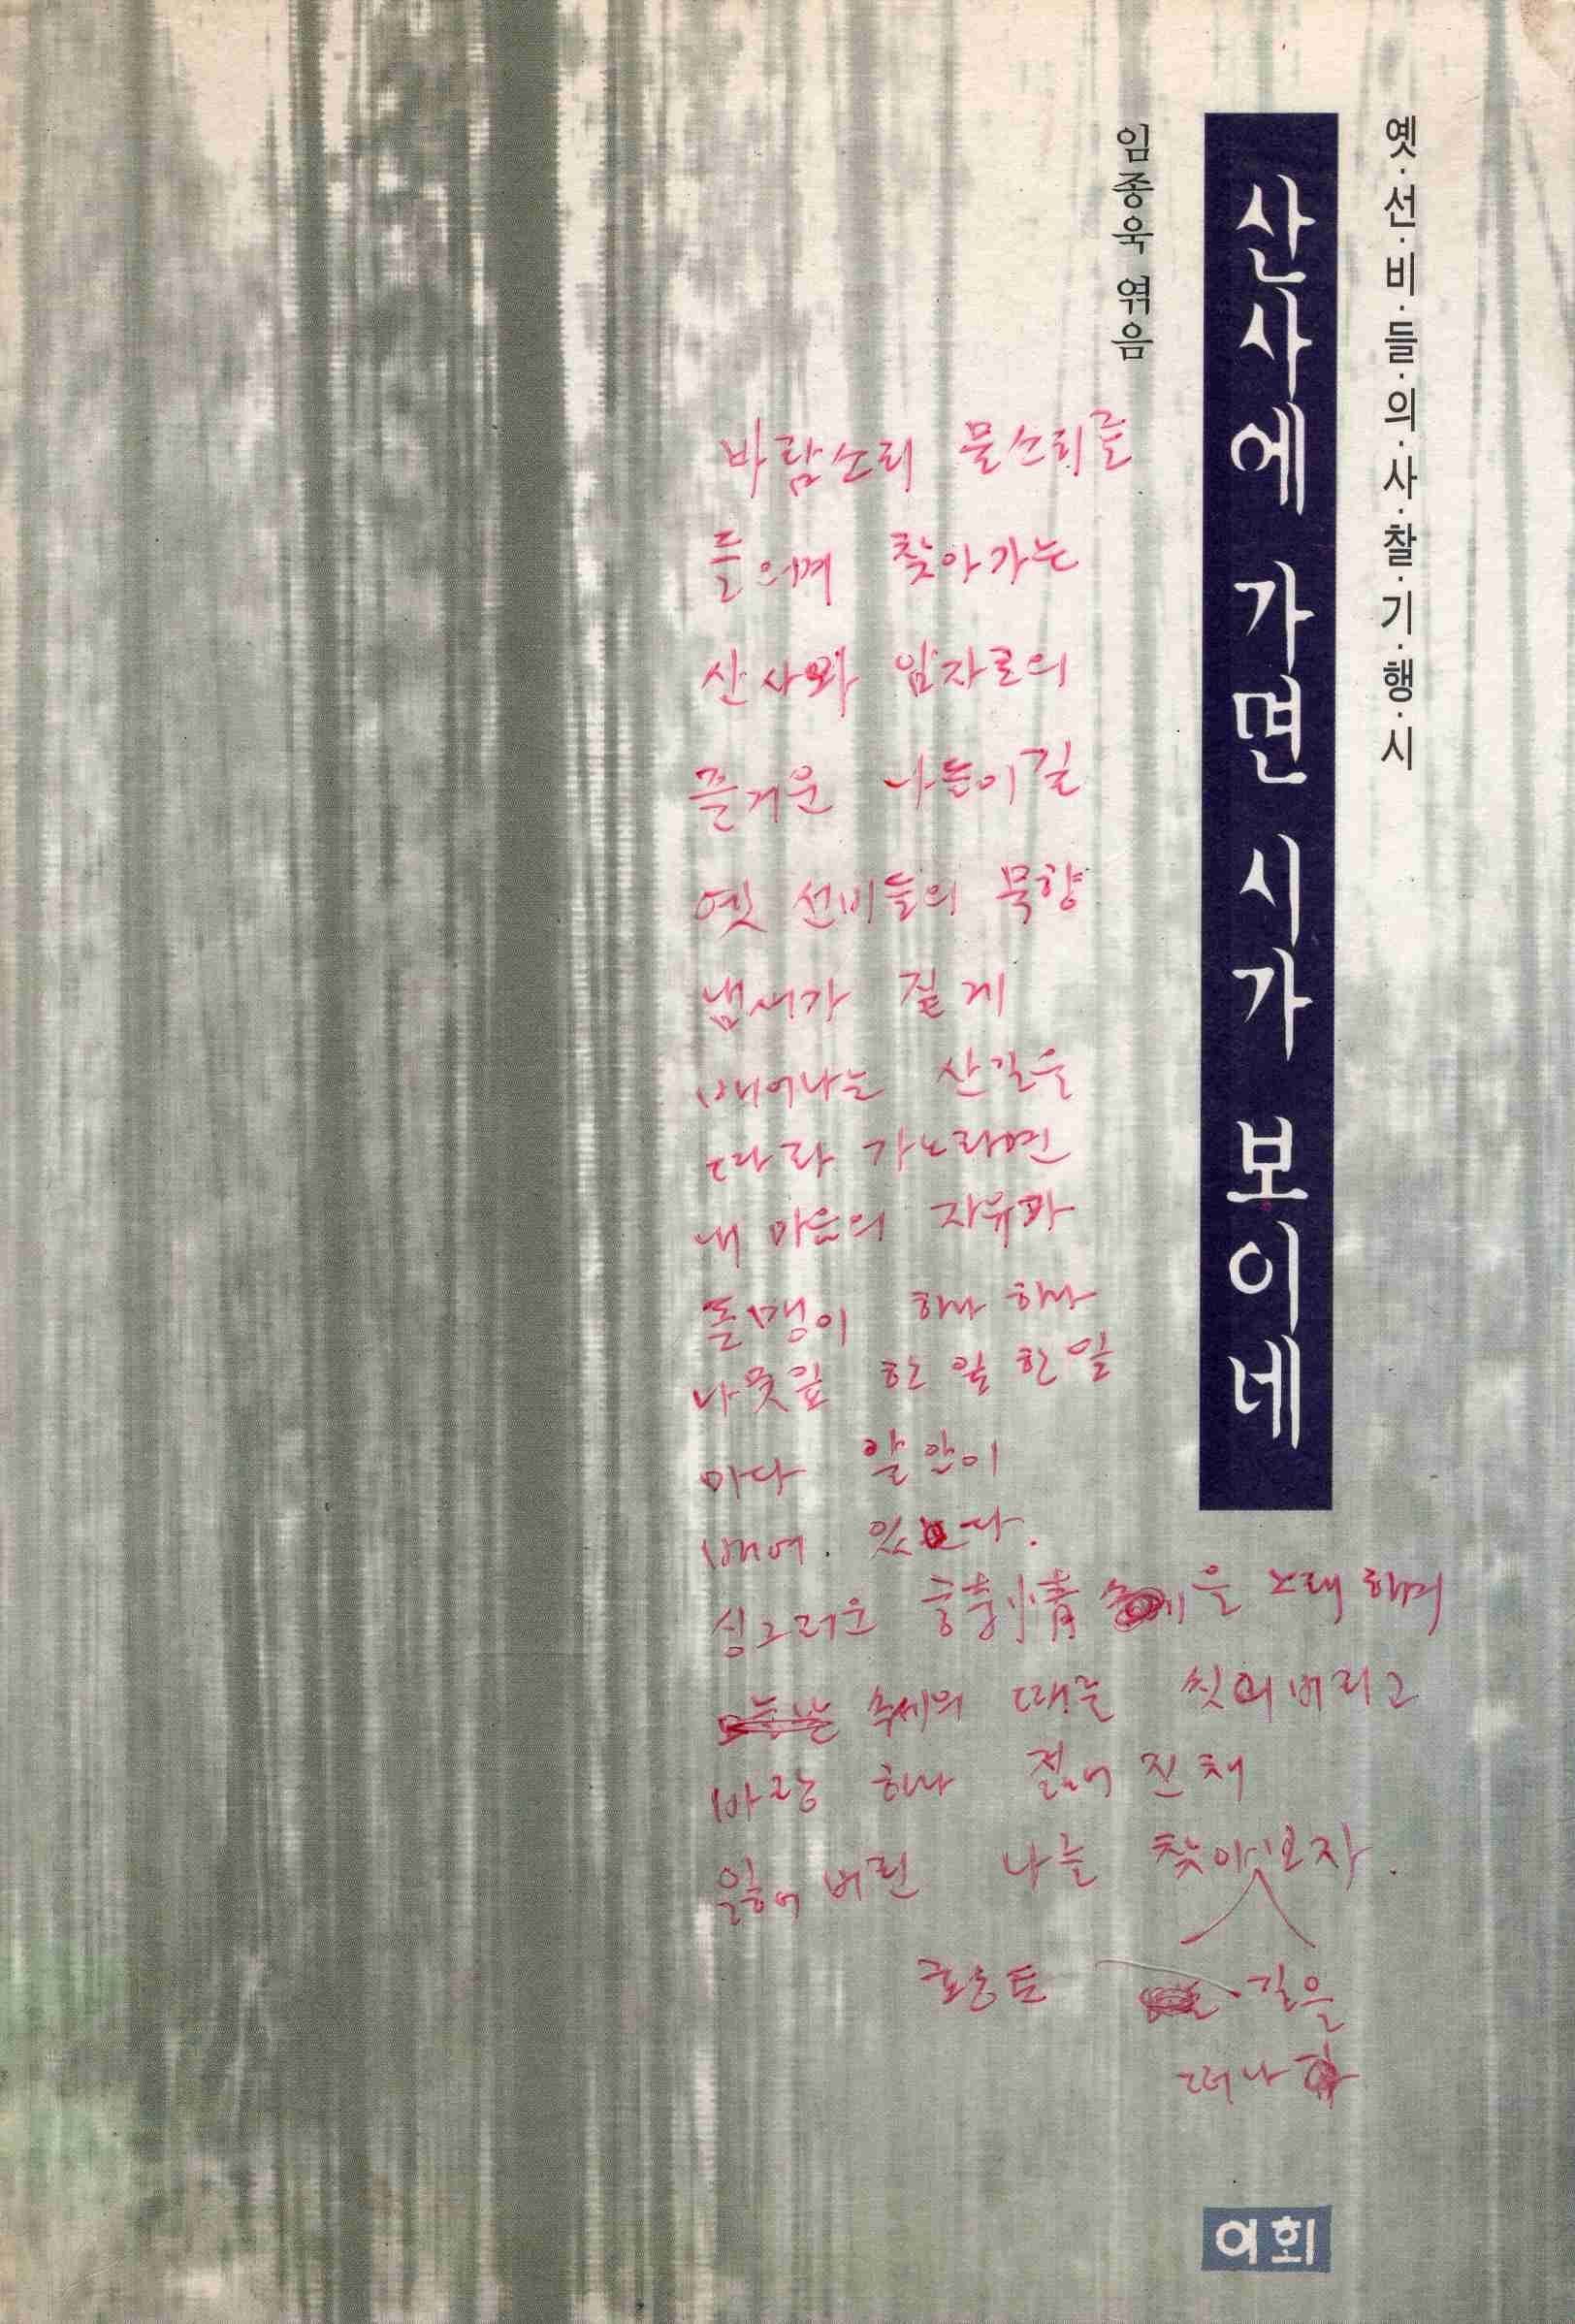 옛·선·비·들·의·사·찰·기·행·시
산사에 가면 시가 보이네
임종욱 엮음
바람소리 물소리를
들으며 찾아가는
산사와 암자로의
즐거운 나들이 길
옛 선비들의 묵향
냄새가 짙게
배어나는 산길을
따라 가노라면
내 마음의 자유가
돌맹이 하나 하나
나뭇잎 한 잎 한 잎
마다 알알이
배어 있다.
싱그러운 을 노래하며
속세의 때를 씻어버리고
바랑 하나 짊어 진 채
잃어 버린 나를 찾아보자.
길을
떠나
여회